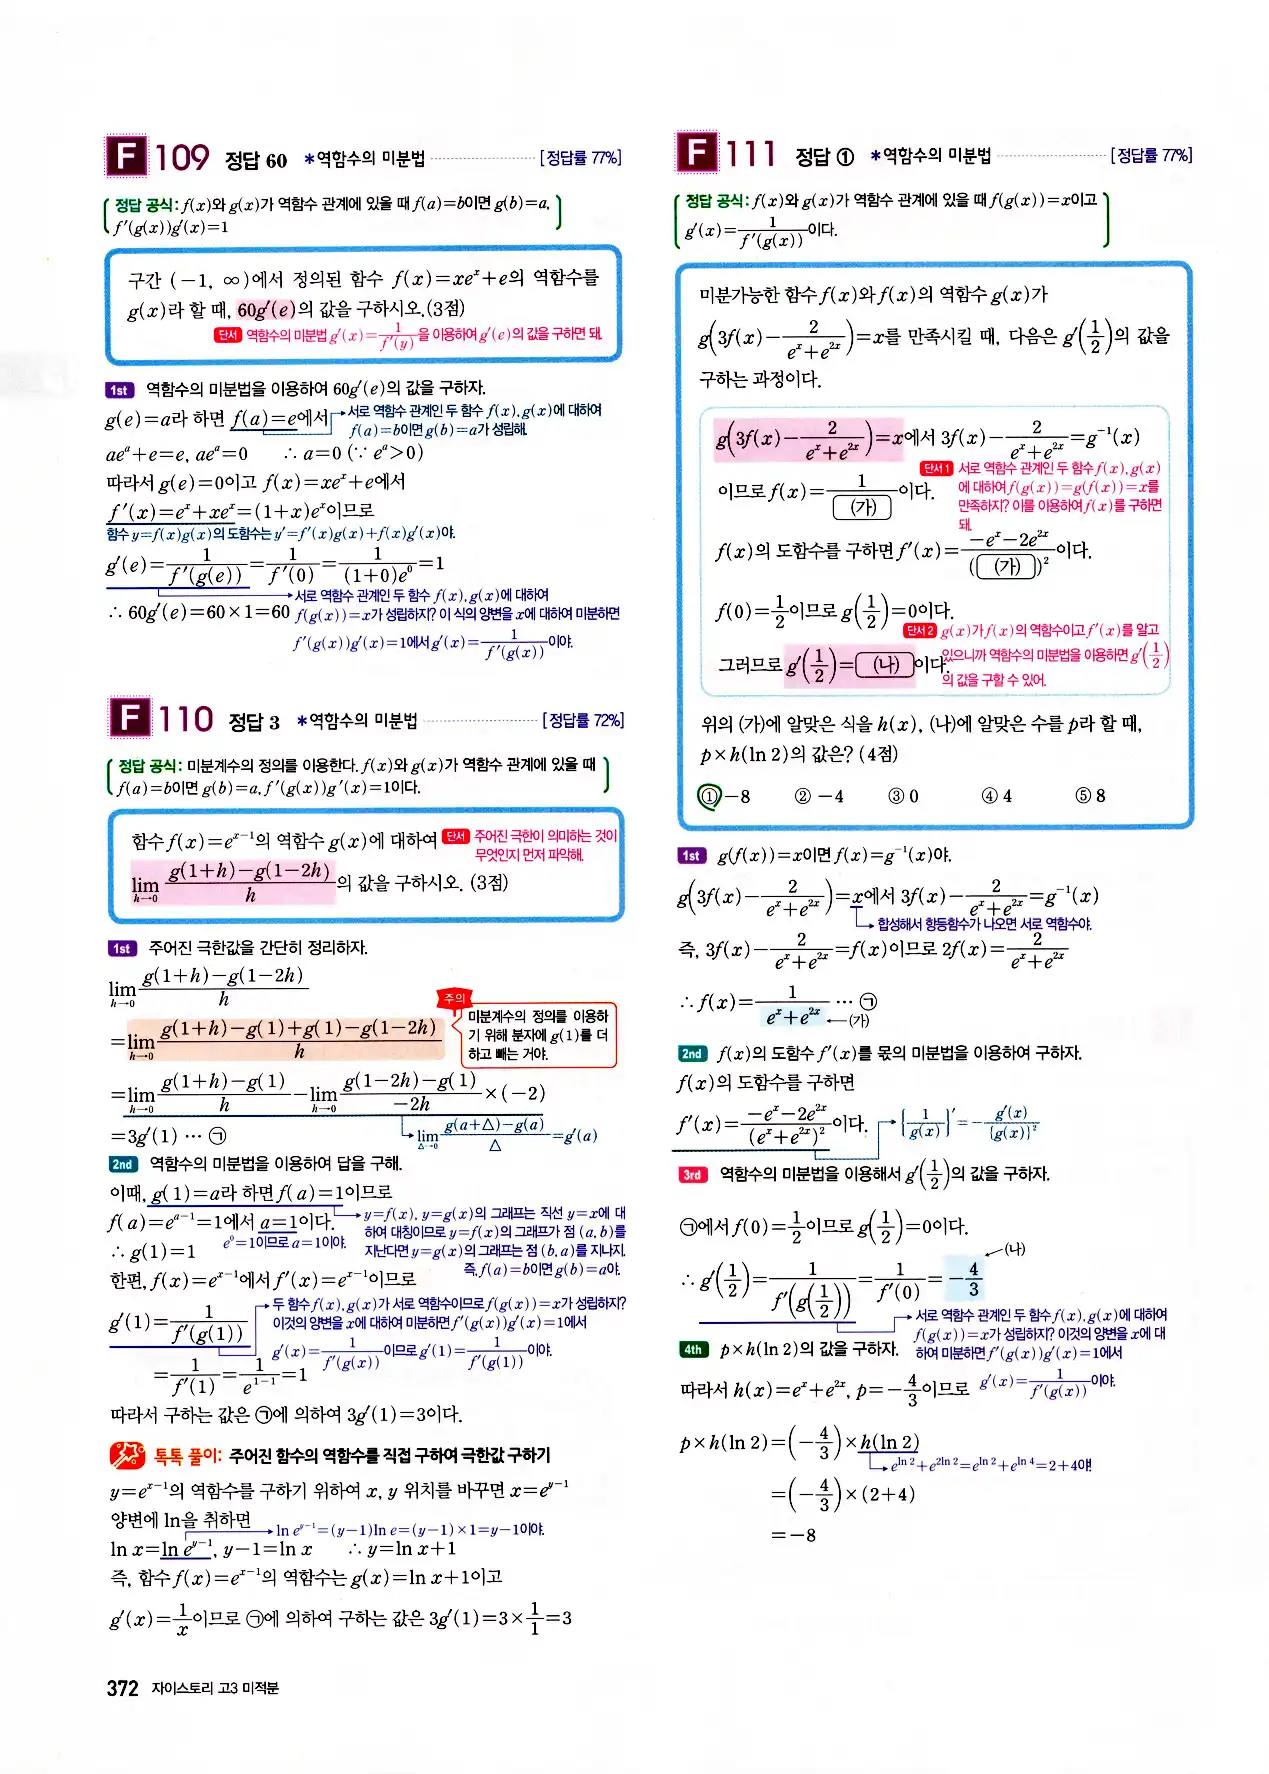 F 109 정답 60 *역함수의 미분법 [정답률 77%]
정답 공식: f(x)와 g(x)가 역함수 관계에 있을 때 f(a)=b이면 g(b)=a,
f′(g(x))g′(x)=1
구간 (−1, ∞)에서 정의된 함수 f(x)=xeˣ+e의 역함수를
g(x)라 할 때, 60g′(e)의 값을 구하시오. (3점)
단서 역함수의 미분법 g′(x)=1/f′(y)을 이용하여 g′(e)의 값을 구하면 돼.
1st 역함수의 미분법을 이용하여 60g′(e)의 값을 구하자.
g(e)=a라 하면 f(a)=e에서 → 서로 역함수 관계인 두 함수 f(x), g(x)에 대하여
f(a)=b이면 g(b)=a가 성립해.
aeᵃ+e=e, aeᵃ=0 ∴ a=0 (∵ eᵃ>0)
따라서 g(e)=0이고 f(x)=xeˣ+e에서
f′(x)=eˣ+xeˣ=(1+x)eˣ이므로
함수 y=f(x)g(x)의 도함수는 y′=f′(x)g(x)+f(x)g′(x)야.
g′(e)=1/f′(g(e))=1/f′(0)=1/((1+0)e⁰)=1
→ 서로 역함수 관계인 두 함수 f(x), g(x)에 대하여
∴ 60g′(e)=60×1=60 f(g(x))=x가 성립하지? 이 식의 양변을 x에 대하여 미분하면
f′(g(x))g′(x)=1에서 g′(x)=1/f′(g(x))이야.
F 110 정답 3 *역함수의 미분법 [정답률 72%]
정답 공식: 미분계수의 정의를 이용한다. f(x)와 g(x)가 역함수 관계에 있을 때
f(a)=b이면 g(b)=a, f′(g(x))g′(x)=1이다.
함수 f(x)=eˣ⁻¹의 역함수 g(x)에 대하여 단서 주어진 극한이 의미하는 것이
무엇인지 먼저 파악해.
lim(h→0) {g(1+h)−g(1−2h)}/h의 값을 구하시오. (3점)
1st 주어진 극한값을 간단히 정리하자.
lim(h→0) {g(1+h)−g(1−2h)}/h
=lim(h→0) {g(1+h)−g(1)+g(1)−g(1−2h)}/h
주의
미분계수의 정의를 이용하
기 위해 분자에 g(1)를 더
하고 빼는 거야.
=lim(h→0) {g(1+h)−g(1)}/h−lim(h→0) {g(1−2h)−g(1)}/(−2h)×(−2)
=3g′(1) … ㉠ → lim(△→0) {g(a+△)−g(a)}/△=g′(a)
2nd 역함수의 미분법을 이용하여 답을 구해.
이때, g(1)=a라 하면 f(a)=1이므로
f(a)=eᵃ⁻¹=1에서 a=1이다. → y=f(x), y=g(x)의 그래프는 직선 y=x에 대
하여 대칭이므로 y=f(x)의 그래프가 점 (a, b)를
∴ g(1)=1 e⁰=1이므로 a=1이야. 지난다면 y=g(x)의 그래프는 점 (b, a)를 지나지.
즉, f(a)=b이면 g(b)=a야.
한편, f(x)=eˣ⁻¹에서 f′(x)=eˣ⁻¹이므로
g′(1)=1/f′(g(1)) → 두 함수 f(x), g(x)가 서로 역함수이므로 f(g(x))=x가 성립하지?
이것의 양변을 x에 대하여 미분하면 f′(g(x))g′(x)=1에서
g′(x)=1/f′(g(x))이므로 g′(1)=1/f′(g(1))이야.
=1/f′(1)=1/e¹⁻¹=1
따라서 구하는 값은 ㉠에 의하여 3g′(1)=3이다.
톡톡 풀이: 주어진 함수의 역함수를 직접 구하여 극한값 구하기
y=eˣ⁻¹의 역함수를 구하기 위하여 x, y 위치를 바꾸면 x=eʸ⁻¹
양변에 ln을 취하면 → ln eʸ⁻¹=(y−1)ln e=(y−1)×1=y−1이야.
ln x=ln eʸ⁻¹, y−1=ln x ∴ y=ln x+1
즉, 함수 f(x)=eˣ⁻¹의 역함수는 g(x)=ln x+1이고
g′(x)=1/x이므로 ㉠에 의하여 구하는 값은 3g′(1)=3×1/1=3
372 자이스토리 고3 미적분
F 111 정답 ① *역함수의 미분법 [정답률 77%]
정답 공식: f(x)와 g(x)가 역함수 관계에 있을 때 f(g(x))=x이고
g′(x)=1/f′(g(x))이다.
미분가능한 함수 f(x)와 f(x)의 역함수 g(x)가
g(3f(x)−2/(eˣ+e²ˣ))=x를 만족시킬 때, 다음은 g′(1/2)의 값을
구하는 과정이다.
g(3f(x)−2/(eˣ+e²ˣ))=x에서 3f(x)−2/(eˣ+e²ˣ)=g⁻¹(x)
단서1 서로 역함수 관계인 두 함수 f(x), g(x)
이므로 f(x)=1/(가)이다. 에 대하여 f(g(x))=g(f(x))=x를
만족하지? 이를 이용하여 f(x)를 구하면
돼.
f(x)의 도함수를 구하면 f′(x)=(−eˣ−2e²ˣ)/((가))²이다.
f(0)=1/2이므로 g(1/2)=0이다.
단서2 g(x)가 f(x)의 역함수이고 f′(x)를 알고
그러므로 g′(1/2)=(나)이다. 있으니까 역함수의 미분법을 이용하면 g′(1/2)
의 값을 구할 수 있어.
위의 (가)에 알맞은 식을 h(x), (나)에 알맞은 수를 p라 할 때,
p×h(ln 2)의 값은? (4점)
① −8 ② −4 ③ 0 ④ 4 ⑤ 8
1st g(f(x))=x이면 f(x)=g⁻¹(x)야.
g(3f(x)−2/(eˣ+e²ˣ))=x에서 3f(x)−2/(eˣ+e²ˣ)=g⁻¹(x)
→ 합성해서 항등함수가 나오면 서로 역함수야.
즉, 3f(x)−2/(eˣ+e²ˣ)=f(x)이므로 2f(x)=2/(eˣ+e²ˣ)
∴ f(x)=1/(eˣ+e²ˣ) … ㉠ ←(가)
2nd f(x)의 도함수 f′(x)를 몫의 미분법을 이용하여 구하자.
f(x)의 도함수를 구하면
f′(x)=(−eˣ−2e²ˣ)/(eˣ+e²ˣ)²이다. → {1/g(x)}′=−g′(x)/{g(x)}²
3rd 역함수의 미분법을 이용해서 g′(1/2)의 값을 구하자.
㉠에서 f(0)=1/2이므로 g(1/2)=0이다.
∴ g′(1/2)=1/f′(g(1/2))=1/f′(0)=−4/3 ←(나)
→ 서로 역함수 관계인 두 함수 f(x), g(x)에 대하여
f(g(x))=x가 성립하지? 이것의 양변을 x에 대
4th p×h(ln 2)의 값을 구하자. 하여 미분하면 f′(g(x))g′(x)=1에서
따라서 h(x)=eˣ+e²ˣ, p=−4/3이므로 g′(x)=1/f′(g(x))이야.
p×h(ln 2)=(−4/3)×h(ln 2)
→ e^(ln 2)+e^(2ln 2)=e^(ln 2)+e^(ln 4)=2+4야!
=(−4/3)×(2+4)
=−8